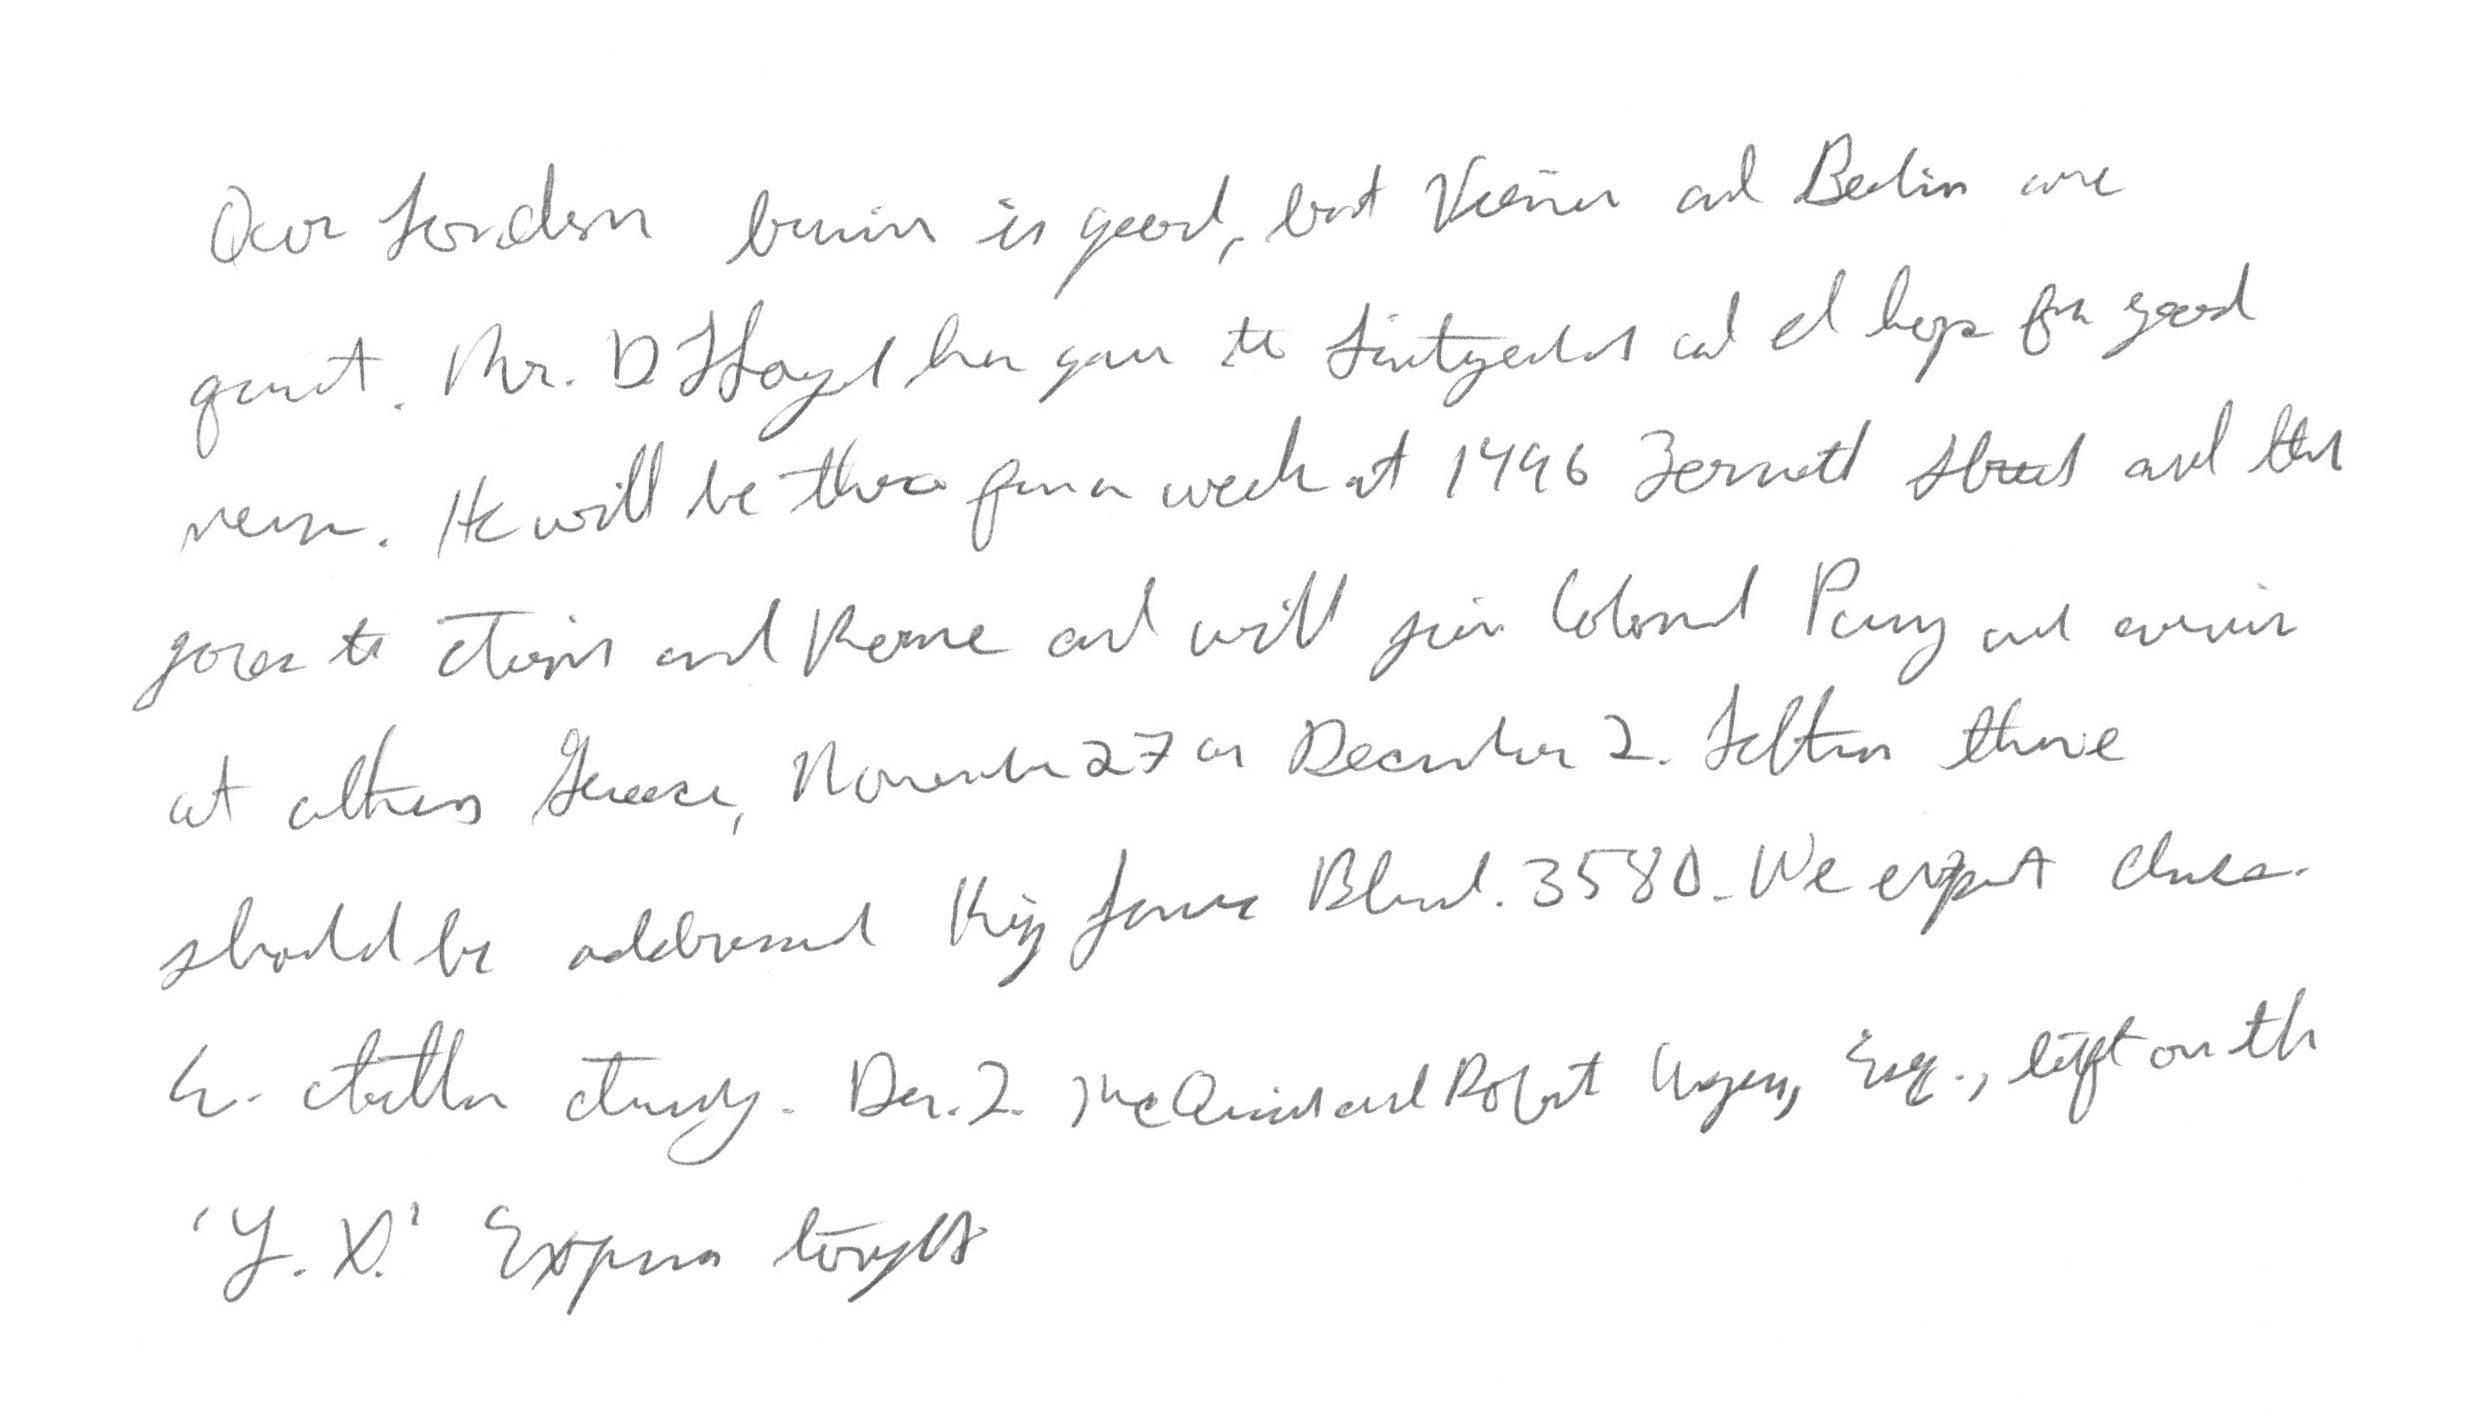 Our London business is good, but Vienna and Berlin are
quiet. Mr. D. Lloyd has gone to Switzerland and I hope for good
news. He will be there for a week at 1496 Zermott Street and then
goes to Turin and Rome and will join Colonel Parry and arrive
at Athens Greece, November 27 or December 2. Letters there
should be addressed King James Blvd. 3580. We expect Chas.
E. Fuller Tuesday. Dr. L. McQuaid and Robert Unger, Esq., left on the
'Y. X.' Express tonight